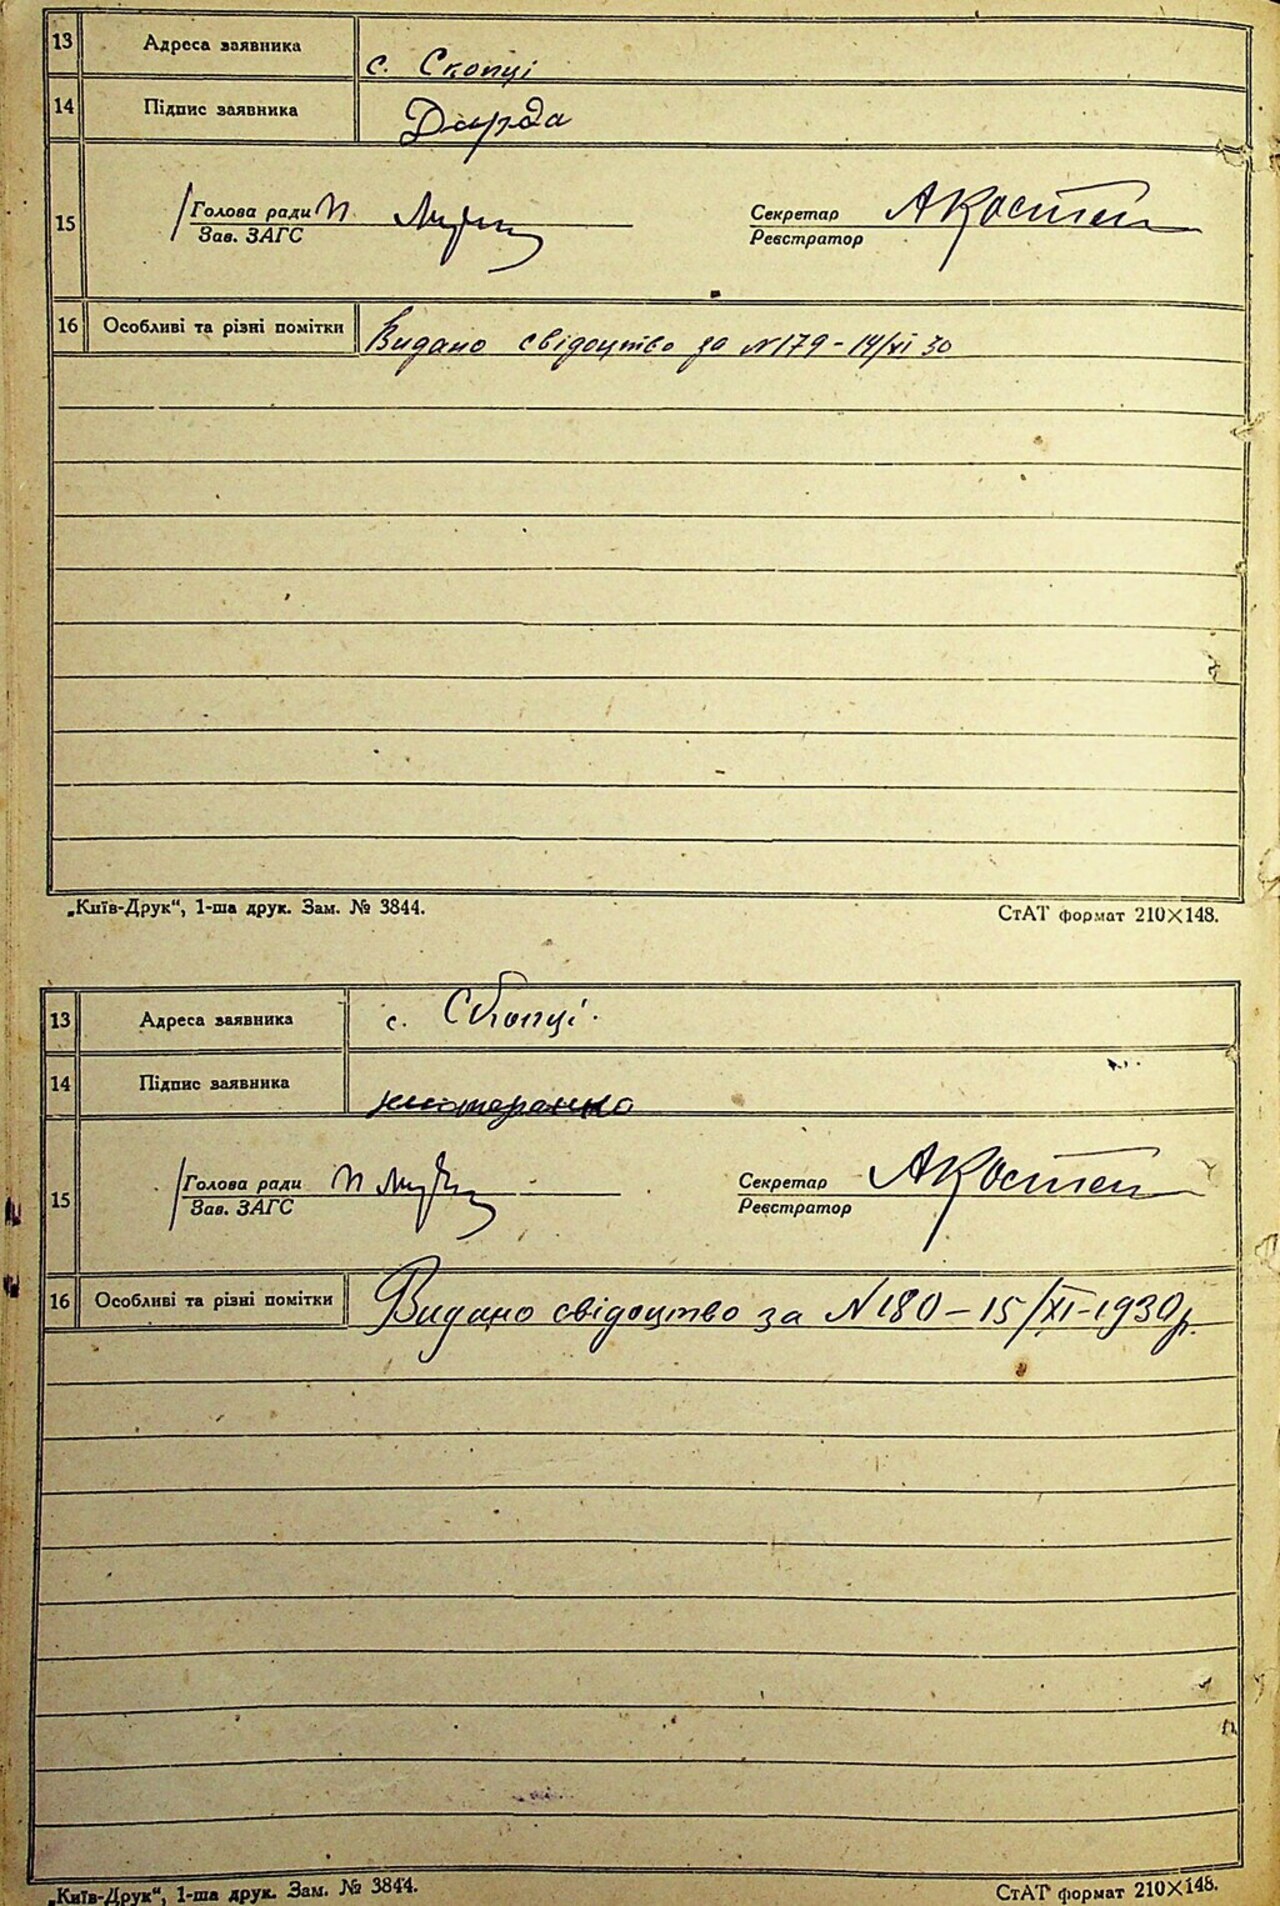 13 Адреса заявника с. Скопці
14 Підпис заявника Дарда
15 Голова ради П. Секретар АКостен
Зав. ЗАГС Реєстратор
16 Особливі та різні помітки Видано свідоцтво за N179 - 14/XI 30
„Київ-Друк“, 1-ша друк. Зам. № 3844. СтАТ формат 210×148.
13 Адреса заявника с. Скопці.
14 Підпис заявника
15 Голова ради П Секретар АКостен
Зав. ЗАГС Реєстратор
16 Особливі та різні помітки Видано свідоцтво за N180 - 15/XI-1930р.
„Київ-Друк“, 1-ша друк. Зам. № 3844. СтАТ формат 210×148.